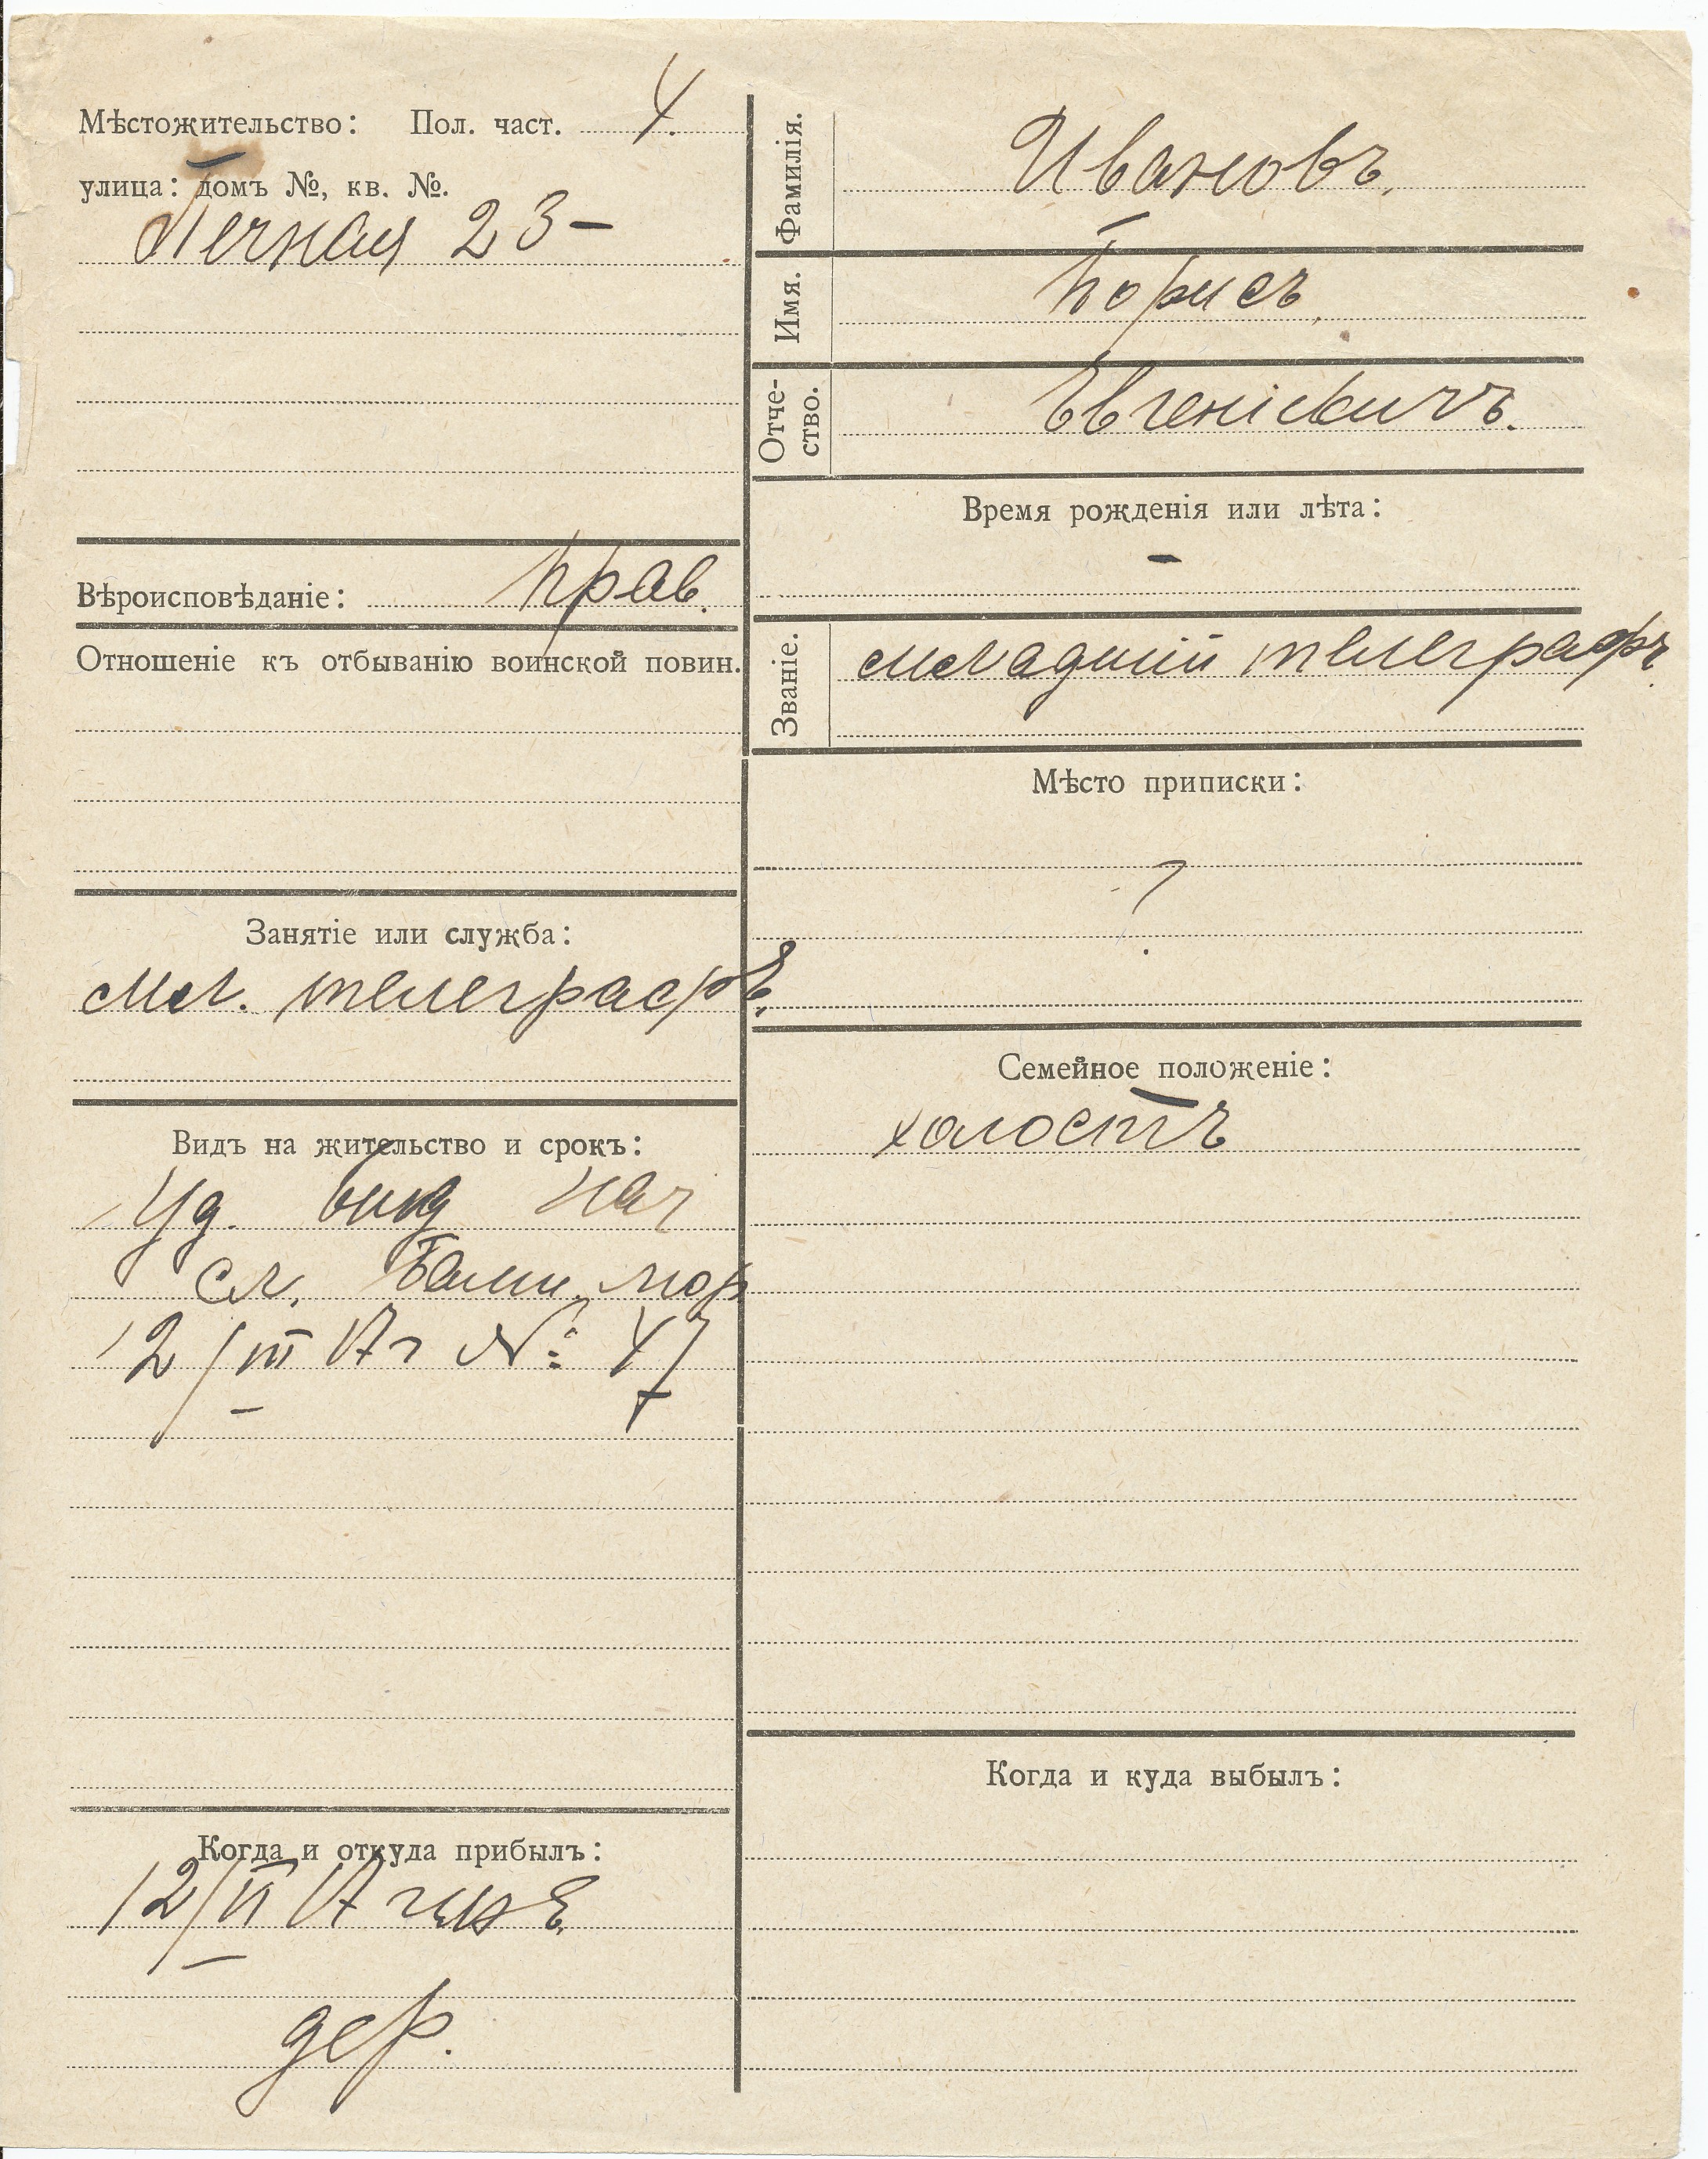 Мѣстожительство: Пол. част. 4.
улица: домъ №, кв. №.
23 –
Вѣроисповѣданіе: прав.
Отношеніе къ отбыванію воинской повин.
Занятіе или служба:
мл. телеграфъ.
Видъ на жительство и срокъ:
Уд. выд нач
сл. мор
12/III 17 г №: 47
Когда и откуда прибылъ:
12/VI 17
дер.
Фамилія. Ивановъ.
Имя. Борисъ.
Отче-
ство. Евгеніевичъ.
Время рожденія или лѣта:
–
Званіе. младшій телеграфъ.
Мѣсто приписки:
?
Семейное положеніе:
холостъ
Когда и куда выбылъ: